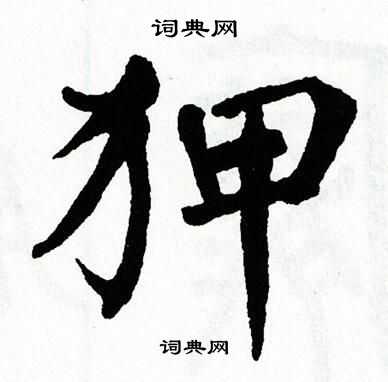 词典网
狎
词典网